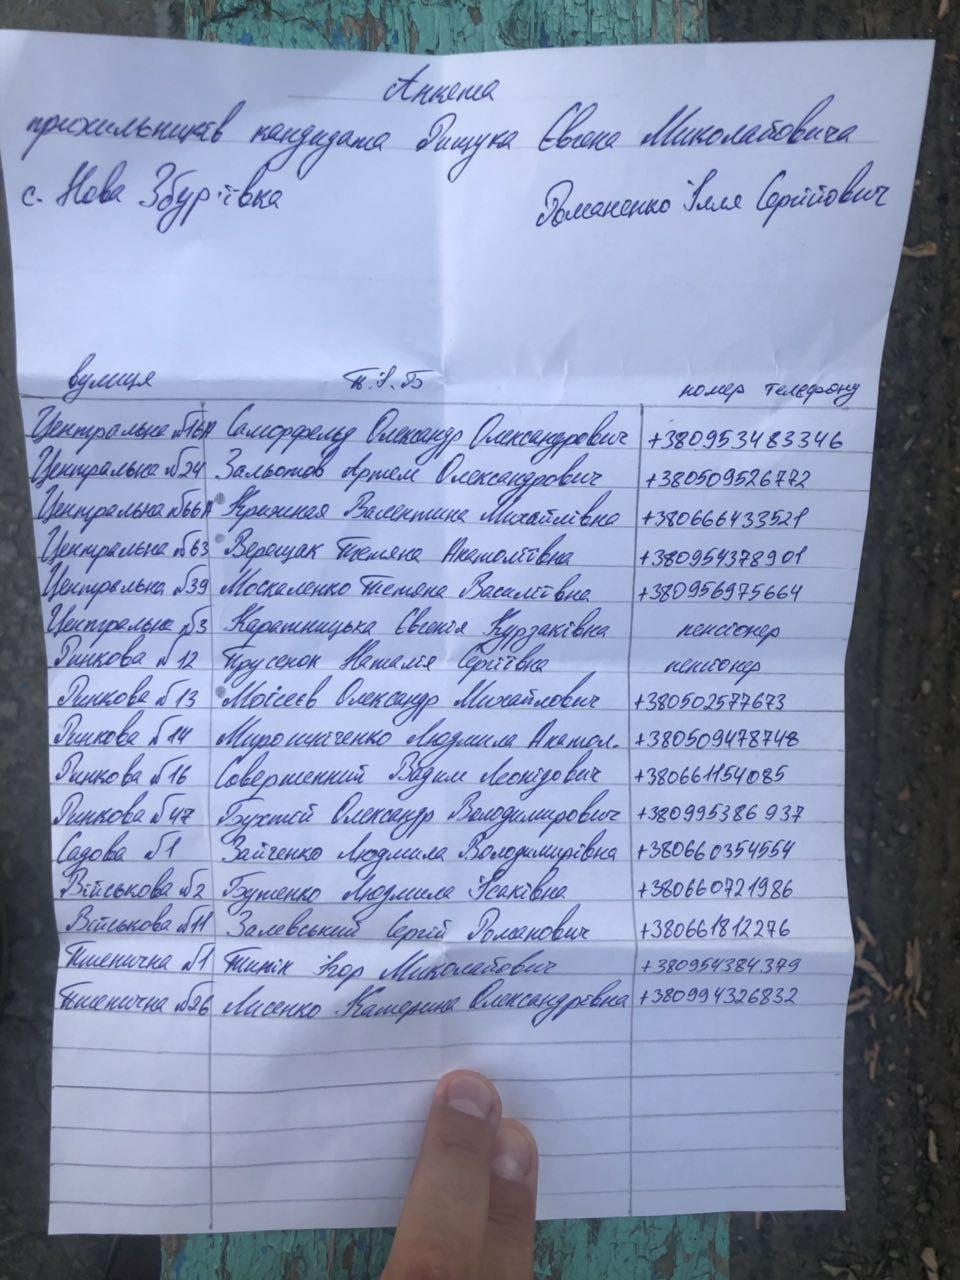 Анкета
прихильників кандидата Рищука Євгена Миколайовича
с. Нова Збур'ївка Романенко Ілля Сергійович
вулиця П.І.Б номер телефону
Центральна №16А Саморфельд Олександр Олександрович +380953483346
Центральна №24 Зальотов Артем Олександрович +380509526772
Центральна №66А Кряжная Валентина Михайлівна +380666433521
Центральна №63 Верещак Тетяна Анатоліївна +380954378901
Центральна №39 Москаленко Тетяна Василівна +380956975664
Центральна №3 Каратницька Євгенія Курзаківна пенсіонер
Ринкова №12 Прусенок Наталія Сергіївна пенсіонер
Ринкова №13 Моїсеєв Олександр Михайлович +380502577673
Ринкова №14 Мирошніченко Людмила Анатол. +380509478748
Ринкова №16 Совершенний Вадим Леонідович +380661154085
Ринкова №47 Бухтій Олександр Володимирович +380995386937
Садова №1 Зайченко Людмила Володимирівна +380660354554
Військова №2 Бутенко Людмила Ісаківна +380660721986
Військова №11 Залевський Сергій Романович +380661812276
Пшенична №1 Типік Ігор Миколайович +380954384379
Пшенична №26 Лисенко Катерина Олександрівна +380994326832